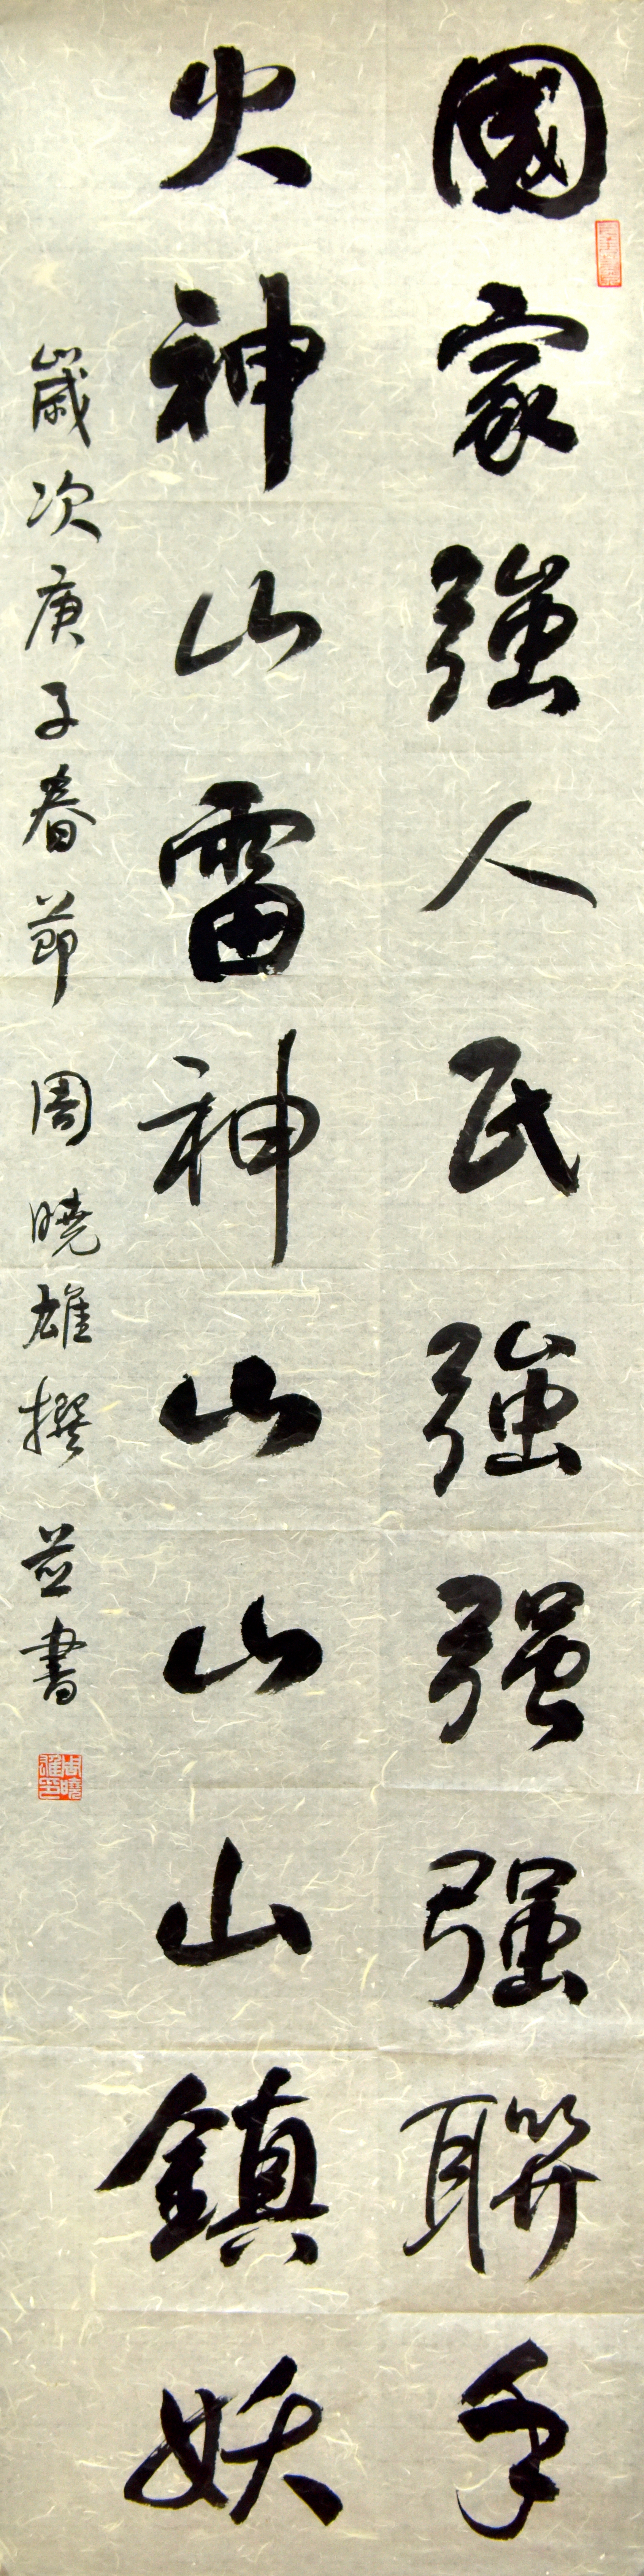 國家強人民強强强聯手
火神山雷神山山山鎮妖
歲次庚子春節 周曉雄撰並書
周曉雄印